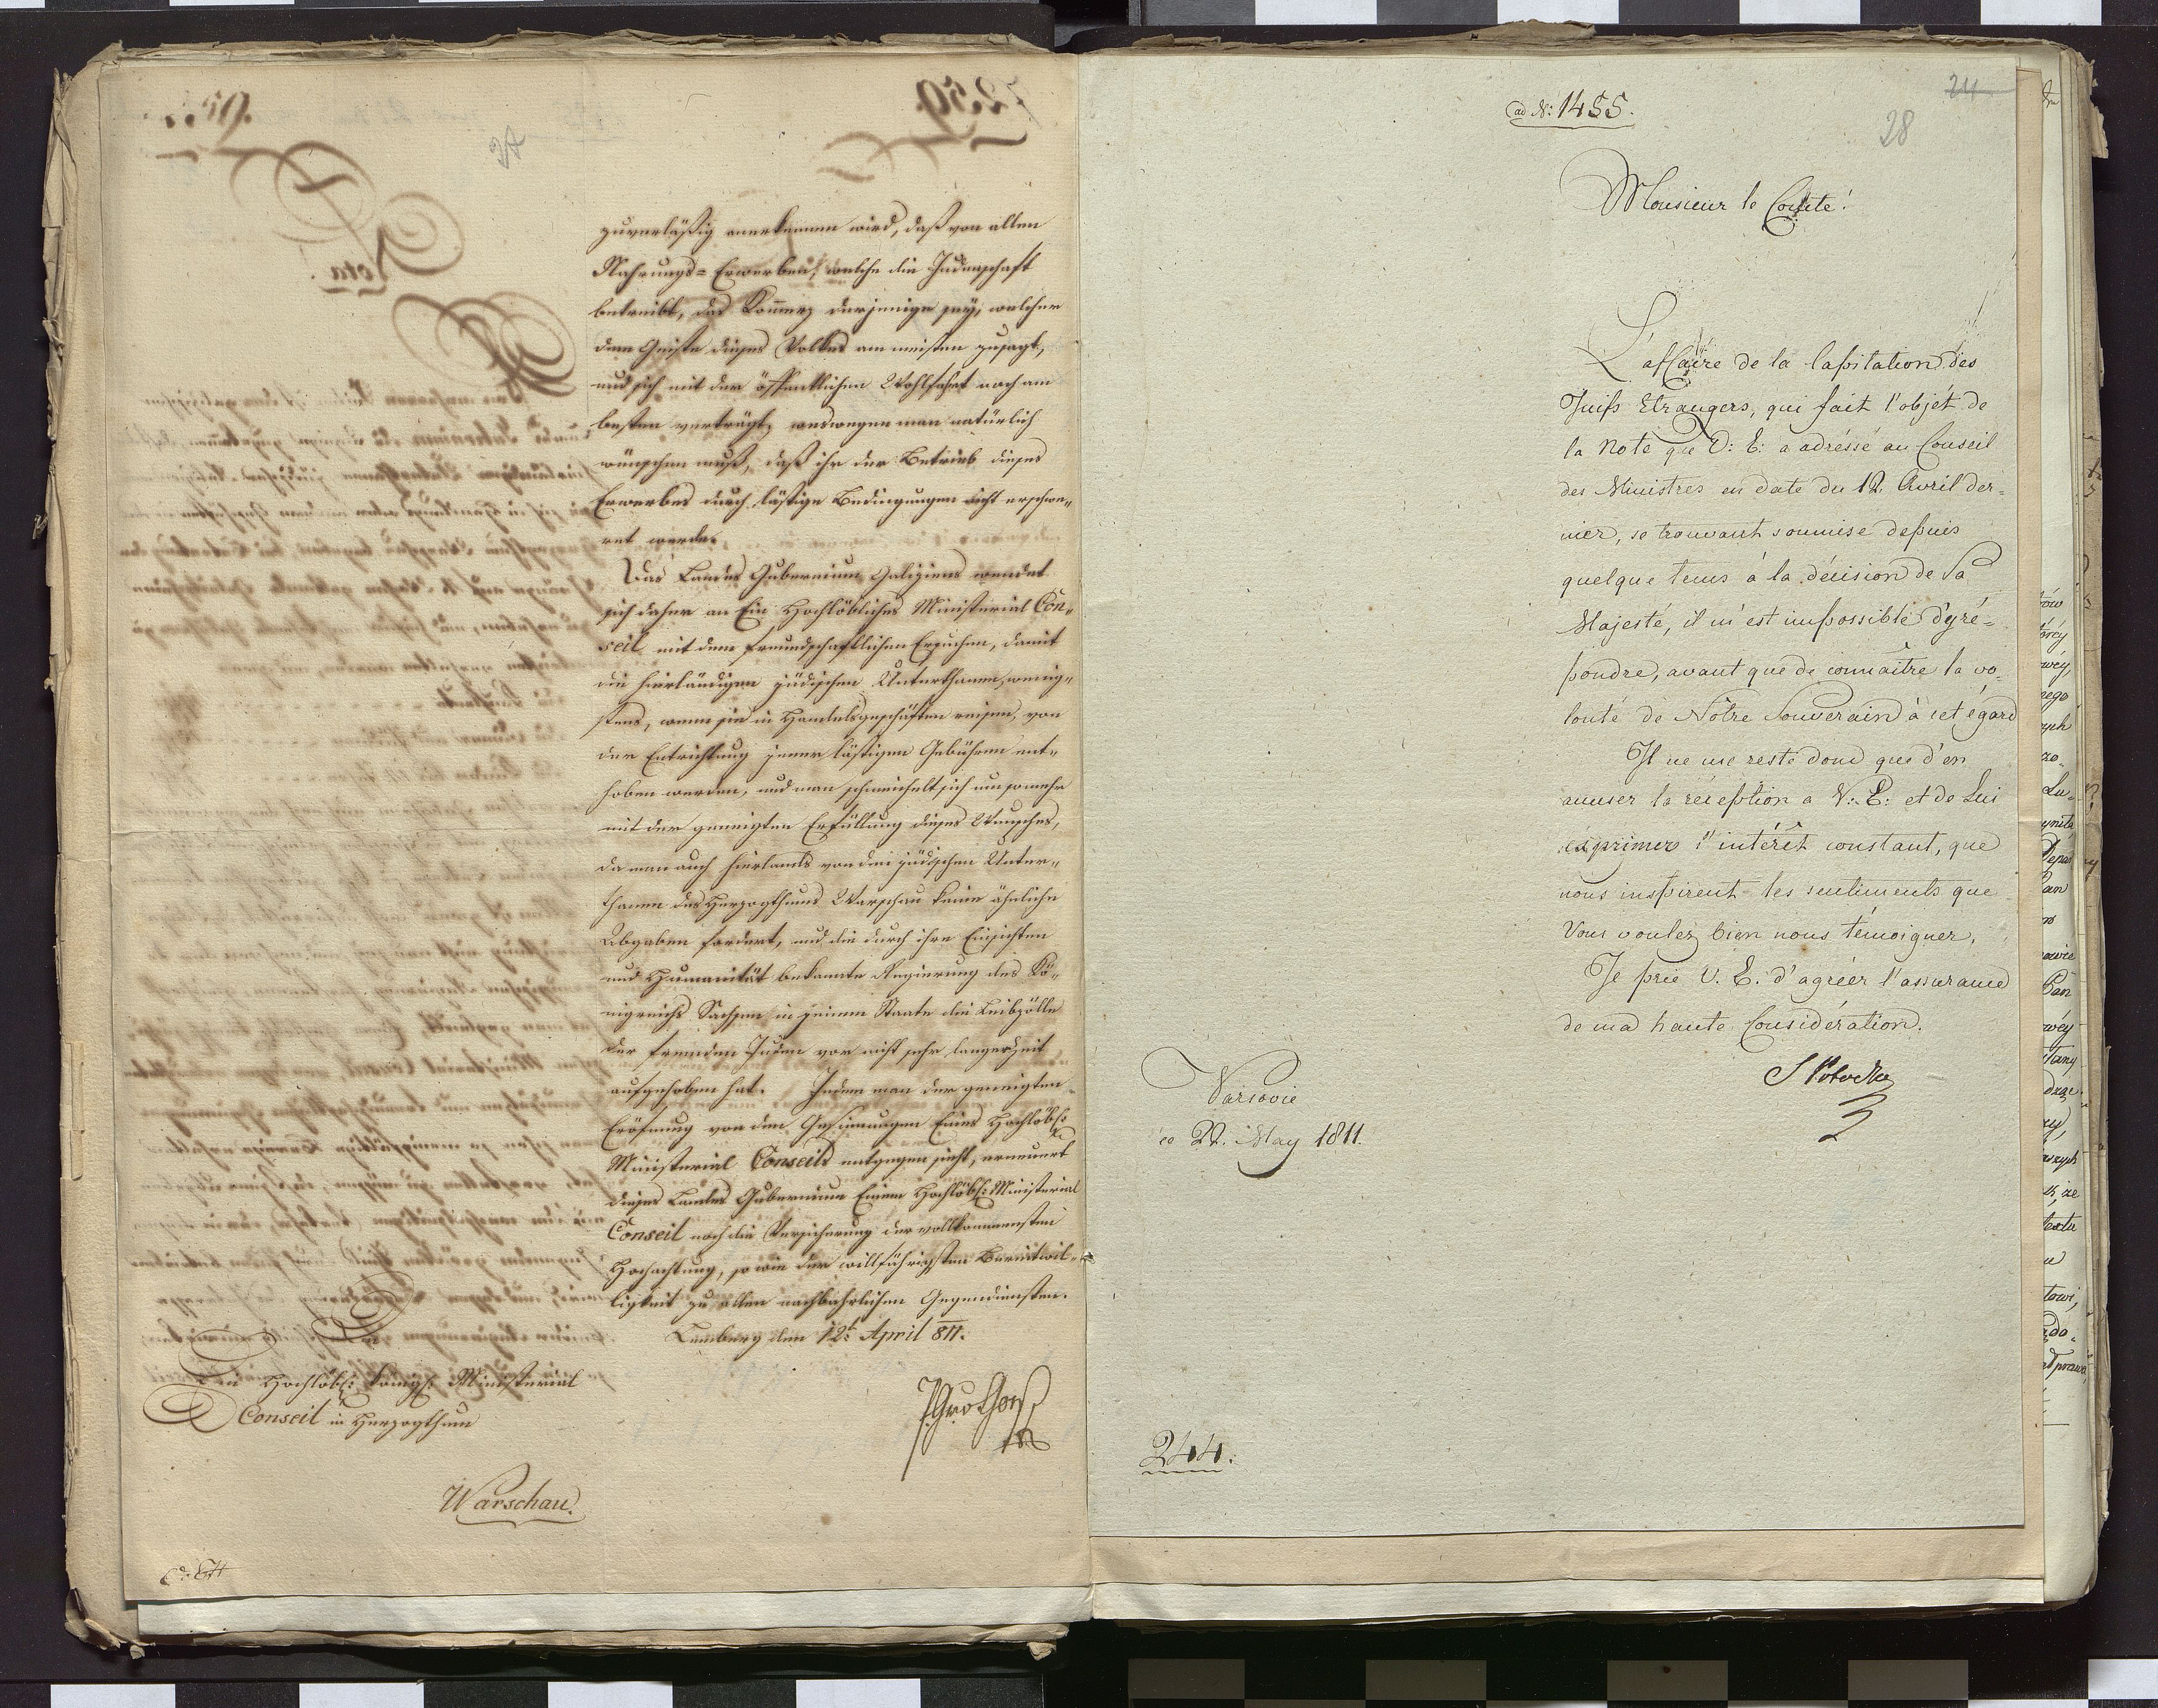 27
zuverläßig anerkennen wird, daß von allen
Nahrungs= Erwerben, welche die Judenschaft
betreibt, das Kommerz derjenige sey, welcher
dem Geiste dieses Volkes am meisten zusagt,
und sich mit der öffentlichen Wohlfahrt noch am
besten verträgt, weswegen man natürlich
wünschen muß, daß ihr der Betrieb dieses
Erwerbes durch lästige Bedingungen nicht erschwe„
ret werde.
Das Landes Gubernium Galiziens wendet
sich daher an Ein Hochlöbliches Ministerial Con„
seil mit dem freundschaftlichen Ersuchen, damit
die hierländigen jüdischen Unterthanen, wenig„
stens, wenn sie in Handelsgeschäften reisen, von
der Entrichtung jener lästigen Gebühren ent„
hoben werden, und man schmeichelt sich umsomehr
mit der geneigten Erfüllung dieses Wunsches,
da man auch hierlands von den jüdischen Unter„
thanen des Herzogthums Warschau keine ähnliche
Abgaben fordert, und die durch ihre Einsichten
und Humanität bekannte Regierung des Kö„
nigreichs Sachsen in seinem Staate die Leibzölle
der fremden Juden vor nicht sehr langer Zeit
aufgehoben hat. Indem man der geneigten
Eröfnung von den Gesinnungen Eines Hochlöbl:
Ministerial Conseils entgegen sieht, erneuert
dieses Landes Gubernium Einem Hochlöbl: Ministerial
Conseil noch die Versicherung der vollkommensten
Hochachtung, so wie der willfährigsten Bereitwil„
ligkeit zu allen nachbahrlichen Gegendiensten.
Lemberg den 12t April 811.
Ein Hochlöbl: königl: Ministerial
Conseil in Herzogthum
Warschau.
24
ad N: 1455.
28
Monsieur le Comte!
L'affaire de la capitation des
Juifs Etrangers, qui fait l'objét de
la Note que V: E: a adréssé au Conseil
des Ministres en date du 12. Avril der=
nier, se trouvant soumise depuis
quelque tems à la décision de Sa
Majesté, il m'est impossible d'y ré=
pondre, avant que de connaître la vo=
lonté de Nôtre Souverain à cet égard
Il ne me reste donc que d'en
accuser la réception a V: E: et de Lui
exprimer l'intérêt constant, que
nous inspirent les sentiments que
Vous voulez bien nous témoigner.
Je prie V. E. d'agréer l'assurance
de ma haute Considération.
S Potocki
Varsovie
ce 22. May 1811.
244.